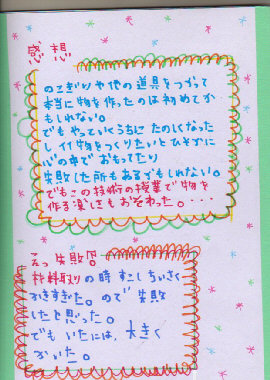 感想
のこぎりや他の道具をつかって
本当に物を作ったのは初めてか
もしれない。
でもやっていくうちに たのしくなった
し イイ物をつくりたいと ひそかに
心の中で おもってたり
失敗した所もあるかもしれない。
でもこの技術の授業で物を
作る楽しさをおそわった。・・・
えっ 失敗!?
材料取りの時 すこしちいさく
かきすぎた。ので 失敗
したと思った。
でも いたには、大きく
かいた。